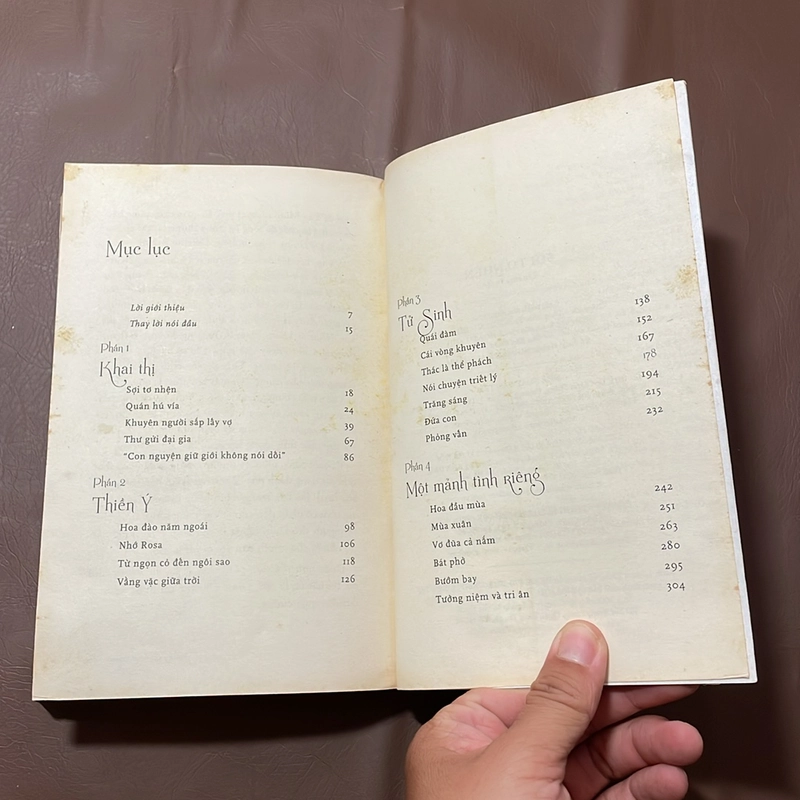 Mục lục
Lời giới thiệu 7
Thay lời nói đầu 15
Phần 1
Khai thị
Sợi tơ nhện 18
Quán hú vía 24
Khuyên người sắp lấy vợ 39
Thư gửi đại gia 67
"Con nguyện giữ giới không nói dối" 86
Phần 2
Thiền Ý
Hoa đào năm ngoái 98
Nhớ Rosa 106
Từ ngọn cỏ đến ngôi sao 118
Vằng vặc giữa trời 126
Phần 3
Tử Sinh
Quái đàm 138
Cái vòng khuyên 152
Thác là thể phách 167
Nói chuyện triết lý 178
Trăng sáng 194
Đứa con 215
Phỏng vấn 232
Phần 4
Một mảnh tình riêng
Hoa đầu mùa 242
Mùa xuân 251
Vơ đũa cả nắm 263
Bát phở 280
Bướm bay 295
Tưởng niệm và tri ân 304